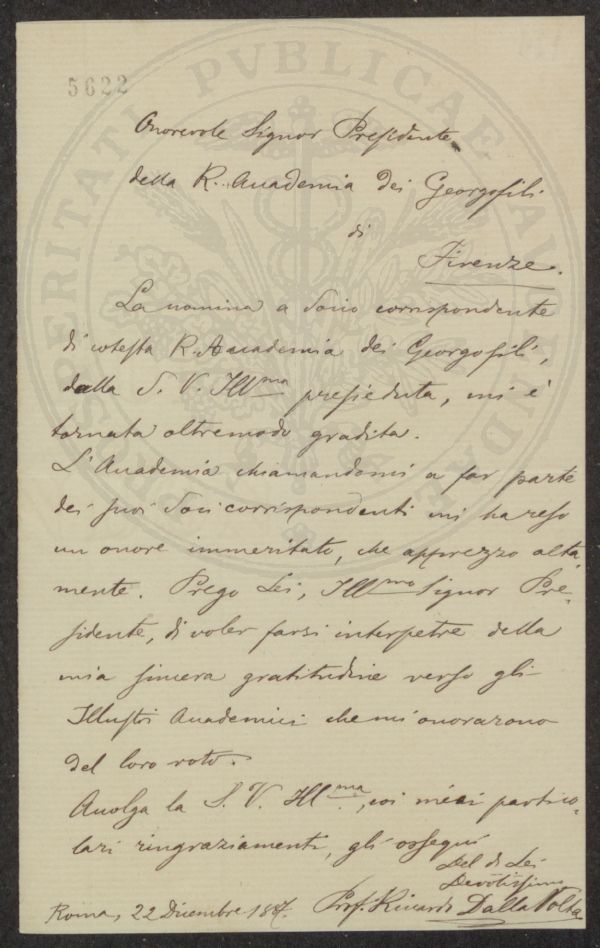 5622
PROSPERITATI PVBLICAE AVGENDAE
Onorevole Signor Presidente
della R. Accademia dei Georgofili
di
Firenze.
La nomina a Socio corrispondente
di cotesta R. Accademia dei Georgofili,
dalla S. V. Ill.ma presieduta, mi è
tornata oltremodo gradita.
L'Accademia chiamandomi a far parte
dei suoi Soci corrispondenti mi ha reso
un onore immeritato, che apprezzo alta-
mente. Prego Lei, Ill.mo Signor Pre-
sidente, di voler farsi interpetre della
mia sincera gratitudine verso gli
Illustri Accademici che mi onorarono
del loro voto.
Accolga la S. V. Ill.ma, coi miei partico-
lari ringraziamenti, gli ossequi
Del di Lei
Devotissimo
Roma, 22 Dicembre 1887. Prof. Riccardo Dalla Volta